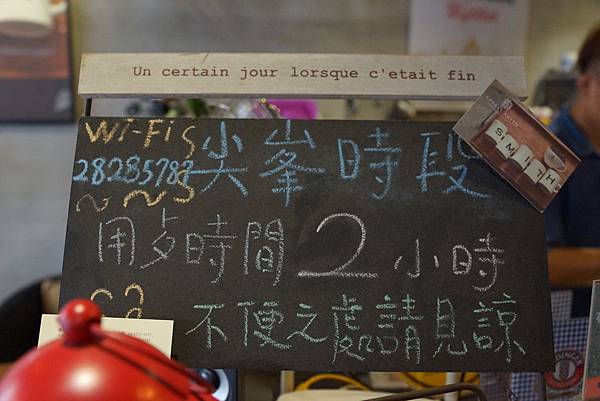 Un certain jour lorsque c'etait fin
Wi-Fi
28285787
尖峯時段
用歺時間2小時
不便之處請見諒
SMITH